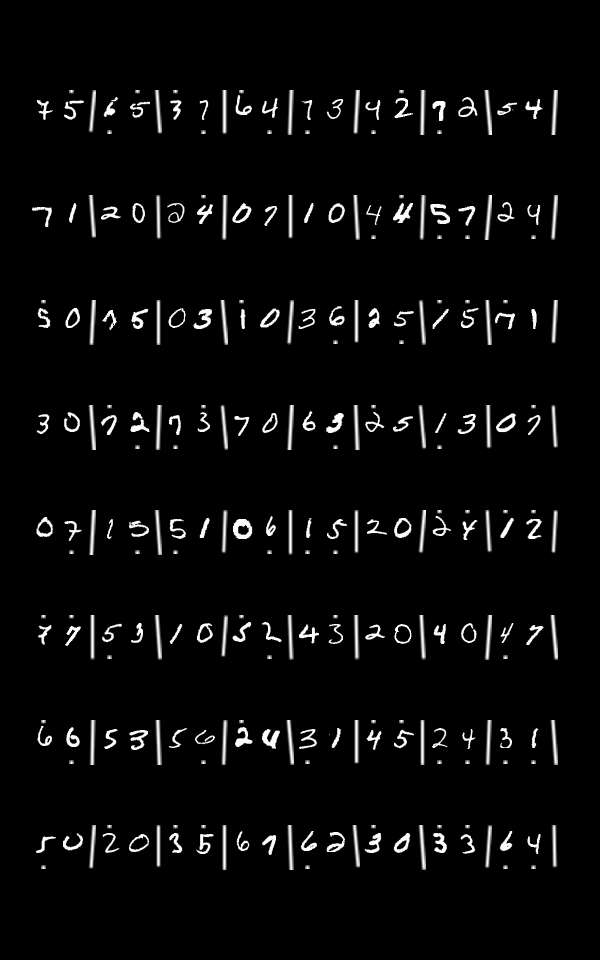 7 5 | 6 5 | 3 7 | 6 4 | 7 3 | 4 2 | 7 2 | 5 4 |
7 1 | 2 0 | 2 4 | 0 7 | 1 0 | 4 4 | 5 7 | 2 4 |
5 0 | 7 5 | 0 3 | 1 0 | 3 6 | 2 5 | 1 5 | 7 1 |
3 0 | 7 2 | 7 3 | 7 0 | 6 3 | 2 5 | 1 3 | 0 7 |
0 7 | 1 5 | 5 1 | 0 6 | 1 5 | 2 0 | 2 4 | 1 2 |
7 7 | 5 3 | 1 0 | 5 2 | 4 3 | 2 0 | 4 0 | 4 7 |
6 6 | 5 3 | 5 6 | 2 4 | 3 1 | 4 5 | 2 4 | 3 1 |
5 0 | 2 0 | 3 5 | 6 7 | 6 2 | 3 0 | 3 3 | 6 4 |